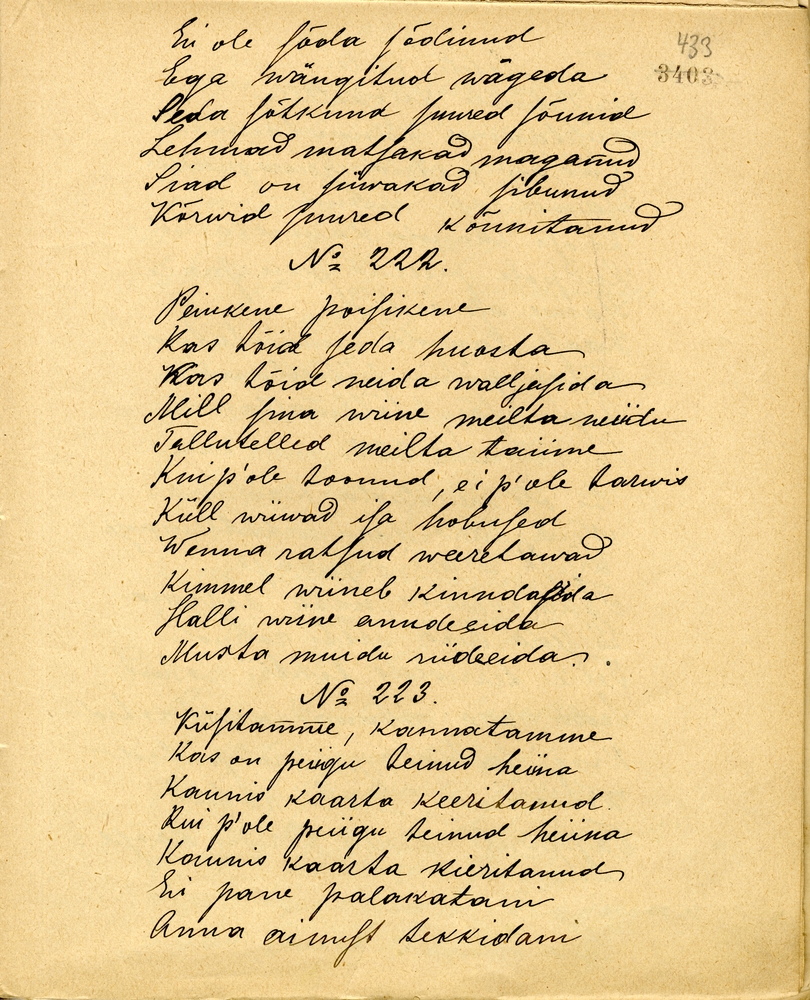 433
3403
Ei ole sõda sõdinud
Ega wängitud wägeda
Seda sõtkund suured sõnnid
Lehmad matsakad maganud
Siad on siiwakad sibunud
Kõrwid suured kõnnitanud
No 222.
Peiukene poisikene
Kas tõid seda huosta
Kas tõid neida walljasida
Mill sina wiine meilta neidu
Tallutelled meilta taime
Kui p'ole toonud, ei p'ole tarwis
Küll wiiwad isa hobused
Wenna ratsud weeretawad
Kimmel wiineb kinndasida
Halli wiine anndeeida
Musta muidu riideeida.
No 223.
Küsitamme, kannatamme
Kas on peiigu teinud heina
Kaunis kaarta keeritanud.
Kui p'ole peiigu teinud heiina
Kaunis kaarta kieritanud
Ei pane palakatani
Anna ainust tekkidani